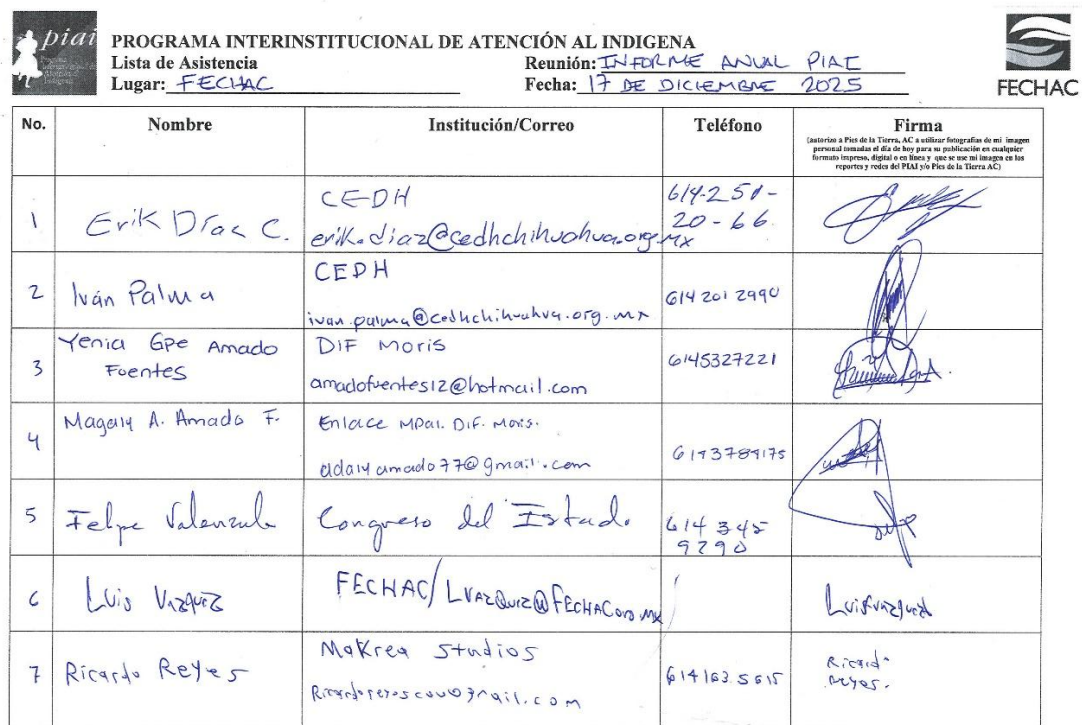 piai
PROGRAMA INTERINSTITUCIONAL DE ATENCIÓN AL INDIGENA
Lista de Asistencia
Reunión: INFORME ANUAL PIAI
Lugar: FECHAC
Fecha: 17 DE DICIEMBRE 2025
FECHAC
No. Nombre Institución/Correo Teléfono Firma
(autorizo a Pies de la Tierra, AC a utilizar fotografías de mi imagen
personal tomadas el día de hoy para su publicación en cualquier
formato impreso, digital o en línea y que se use mi imagen en los
reportes y redes del PIAI y/o Pies de la Tierra AC)
1 Erik Díaz C. CEDH 614-251-
20-66.
erik.diaz@cedhchihuahua.org.mx
2 Iván Palma CEDH 614 201 2990
ivan.palma@cedhchihuahua.org.mx
3 Yenia Gpe Amado
Fuentes
DIF Moris 6145327221
amadofuentes12@hotmail.com
4 Magaly A. Amado F. Enlace MPal. DIF. Moris.
adalyamado77@gmail.com
5 Felipe Valenzuela Congreso del Estado 614 345
9290
6 Luis Vazquez FECHAC/
Luisvazquez
7 Ricardo Reyes Makrea Studios 614 163 5615 Ricardo
Reyes.